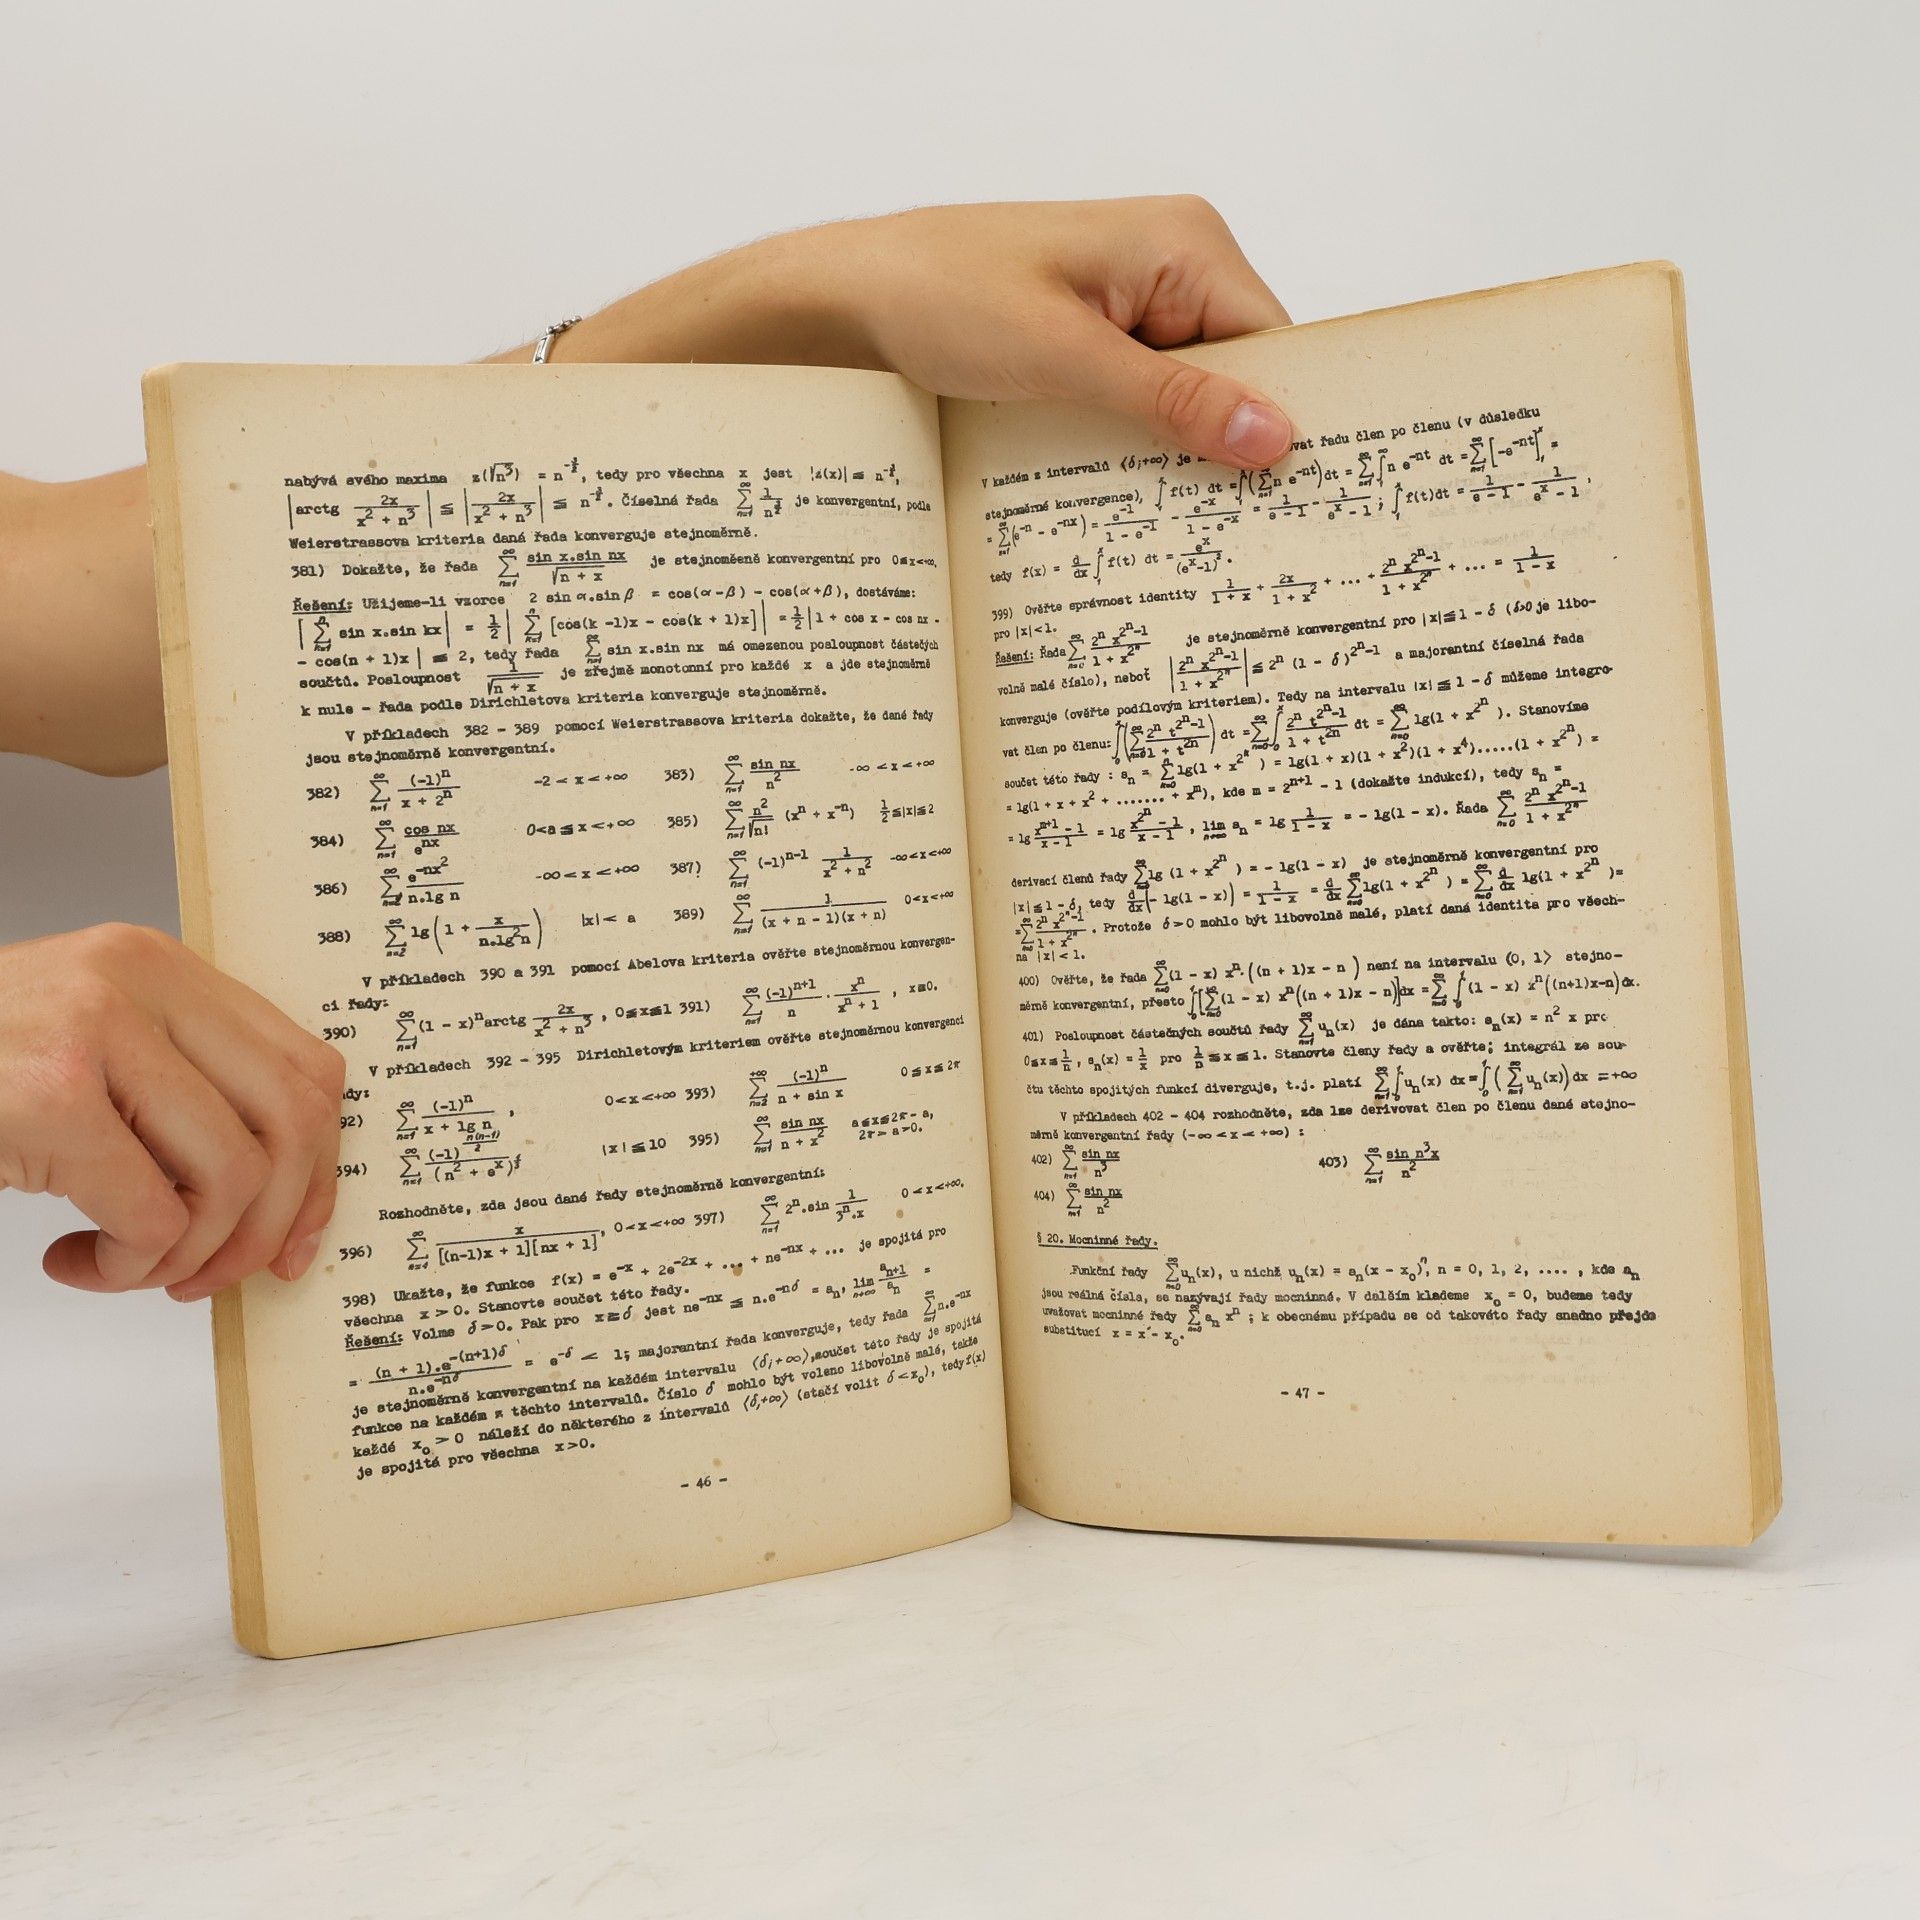 nabývá svého maxima z(√n³) = n^-3/2, tedy pro všechna x jest |z(x)| ≦ n^-3/2,
|arctg 2x/(x² + n³)| ≦ |2x/(x² + n³)| ≦ n^-3/2. Číselná řada ∑_{n=1}^∞ 1/n^3/2 je konvergentní, podle
Weierstrassova kriteria daná řada konverguje stejnoměrně.
381) Dokažte, že řada ∑_{n=1}^∞ (sin x.sin nx)/√(n + x) je stejnoměrně konvergentní pro 0≤x<+∞.
Řešení: Užijeme-li vzorce 2 sin α.sin β = cos(α-β) - cos(α+β), dostáváme:
|∑_{k=1}^n sin x.sin kx| = 1/2 |∑_{k=1}^n [cos(k -1)x - cos(k + 1)x]| = 1/2 |1 + cos x - cos nx -
- cos(n + 1)x| ≦ 2, tedy řada ∑_{n=1}^∞ sin x.sin nx má omezenou posloupnost částečných
součtů. Posloupnost 1/√(n + x) je zřejmě monotonní pro každé x a jde stejnoměrně
k nule - řada podle Dirichletova kriteria konverguje stejnoměrně.
V příkladech 382 - 389 pomocí Weierstrassova kriteria dokažte, že dané řady
jsou stejnoměrně konvergentní.
382) ∑_{n=1}^∞ (-1)^n/(x + 2^n) -2 < x < +∞ 383) ∑_{n=1}^∞ sin nx/n² -∞ < x < +∞
384) ∑_{n=1}^∞ cos nx/e^nx 0<a≦x<+∞ 385) ∑_{n=1}^∞ n²/√n! (x^n + x^-n) 1/2≦|x|≦2
386) ∑_{n=2}^∞ e^-nx²/n.lg n -∞ < x < +∞ 387) ∑_{n=1}^∞ (-1)^n-1 1/(x² + n²) -∞<x<+∞
388) ∑_{n=2}^∞ lg(1 + x/(n.lg²n)) |x| < a 389) ∑_{n=1}^∞ 1/((x + n - 1)(x + n)) 0<x<+∞
V příkladech 390 a 391 pomocí Abelova kriteria ověřte stejnoměrnou konvergen-
ci řady:
390) ∑_{n=1}^∞ (1 - x)^n arctg 2x/(x² + n³), 0≦x≦1 391) ∑_{n=1}^∞ (-1)^n+1/n . x^n/(x^n + 1), x≧0.
V příkladech 392 - 395 Dirichletovým kriteriem ověřte stejnoměrnou konvergenci
dy:
92) ∑_{n=1}^∞ (-1)^n/(x + lg n), 0<x<+∞ 393) ∑_{n=2}^+∞ (-1)^n/(n + sin x) 0≦x≦2π
394) ∑_{n=1}^∞ (-1)^{n(n-1)/2}/(n² + e^x) |x|≦10 395) ∑_{n=1}^∞ sin nx/(n + x²) a≦x≦2π - a,
2π > a >0.
Rozhodněte, zda jsou dané řady stejnoměrně konvergentní:
396) ∑_{n=1}^∞ x/([(n-1)x + 1][nx + 1]), 0<x<+∞ 397) ∑_{n=1}^∞ 2^n.sin 1/(3^n.x) 0<x<+∞.
398) Ukažte, že funkce f(x) = e^-x + 2e^-2x + ... + ne^-nx + ... je spojitá pro
všechna x > 0. Stanovte součet této řady.
Řešení: Volme δ>0. Pak pro x≧δ jest ne^-nx ≦ n.e^-nδ = a_n, lim_{n→∞} a_n+1/a_n =
= (n + 1).e^-(n+1)δ/n.e^-nδ = e^-δ < 1; majorantní řada konverguje, tedy řada ∑_{n=1}^∞ n.e^-nx
je stejnoměrně konvergentní na každém intervalu ⟨δ;+∞),součet této řady je spojitá
funkce na každém z těchto intervalů. Číslo δ mohlo být voleno libovolně malé, takže
každé x₀ > 0 náleží do některého z intervalů ⟨δ,+∞) (stačí volit δ<x₀), tedy f(x)
je spojitá pro všechna x>0.
- 46 -
V každém z intervalů ⟨δ;+∞) je vat řadu člen po členu (v důsledku
stejnoměrné konvergence), ∫_1^x f(t) dt = ∫_1^x (∑_{n=1}^∞ n e^-nt)dt = ∑_{n=1}^∞ ∫_1^x n e^-nt dt = ∑_{n=1}^∞ [-e^-nt]_1^x =
= ∑_{n=1}^∞ (e^-n - e^-nx) = e^-1/(1 - e^-1) - e^-x/(1 - e^-x) = 1/(e - 1) - 1/(e^x - 1) ; ∫_1^x f(t)dt = 1/(e - 1) - 1/(e^x - 1),
tedy f(x) = d/dx ∫_1^x f(t) dt = e^x/(e^x-1)².
399) Ověřte správnost identity 1/(1 + x) + 2x/(1 + x²) + ... + 2^n x^{2^n-1}/(1 + x^{2^n}) + ... = 1/(1 - x)
pro |x|<1.
Řešení: Řada ∑_{n=0}^∞ 2^n x^{2^n-1}/(1 + x^{2^n}) je stejnoměrně konvergentní pro |x|≦1 - δ (δ>0 je libo-
volně malé číslo), neboť |2^n x^{2^n-1}/(1 + x^{2^n})| ≦ 2^n (1 - δ)^{2^n-1} a majorantní číselná řada
konverguje (ověřte podílovým kriteriem). Tedy na intervalu |x|≦1 - δ můžeme integro-
vat člen po členu: ∫_0^x (∑_{n=0}^∞ 2^n t^{2^n-1}/(1 + t^{2n})) dt = ∑_{n=0}^∞ ∫_0^x 2^n t^{2^n-1}/(1 + t^{2n}) dt = ∑_{n=0}^∞ lg(1 + x^{2^n}). Stanovíme
součet této řady : s_n = ∑_{k=0}^n lg(1 + x^{2^k}) = lg(1 + x)(1 + x²)(1 + x⁴).....(1 + x^{2^n}) =
= lg(1 + x + x² + ....... + x^m), kde m = 2^n+1 - 1 (dokažte indukcí), tedy s_n =
= lg (x^m+1 - 1)/(x - 1) = lg (x^{2^n} - 1)/(x - 1), lim_{n→∞} s_n = lg 1/(1 - x) = - lg(1 - x). Řada ∑_{n=0}^∞ 2^n x^{2^n-1}/(1 + x^{2^n})
derivací členů řady ∑_{n=0}^∞ lg (1 + x^{2^n}) = - lg(1 - x) je stejnoměrně konvergentní pro
|x|≦1 - δ, tedy d/dx(- lg(1 - x)) = 1/(1 - x) = d/dx ∑_{n=0}^∞ lg(1 + x^{2^n}) = ∑_{n=0}^∞ d/dx lg(1 + x^{2^n}) =
= ∑_{n=0}^∞ 2^n x^{2^n-1}/(1 + x^{2^n}). Protože δ>0 mohlo být libovolně malé, platí daná identita pro všech-
na |x| < 1.
400) Ověřte, že řada ∑_{n=0}^∞ (1 - x) x^n.((n + 1)x - n) není na intervalu ⟨0, 1⟩ stejno-
měrně konvergentní, přesto ∫_0^1 [∑_{n=0}^∞ (1 - x) x^n((n + 1)x - n)]dx = ∑_{n=0}^∞ ∫_0^1 (1 - x) x^n((n+1)x-n)dx.
401) Posloupnost částečných součtů řady ∑_{n=1}^∞ u_n(x) je dána takto: s_n(x) = n² x pro
0≦x≦1/n, s_n(x) = 1/x pro 1/n≦x≦1. Stanovte členy řady a ověřte; integrál ze sou-
čtu těchto spojitých funkcí diverguje, t.j. platí ∑_{n=1}^∞ ∫_0^1 u_n(x) dx = ∫_0^1 (∑_{n=1}^∞ u_n(x))dx = +∞
V příkladech 402 - 404 rozhodněte, zda lze derivovat člen po členu dané stejno-
měrně konvergentní řady (-∞<x<+∞) :
402) ∑_{n=1}^∞ sin nx/n³ 403) ∑_{n=1}^∞ sin n³x/n²
404) ∑_{n=1}^∞ sin nx/n²
§ 20. Mocninné řady.
Funkční řady ∑_{n=0}^∞ u_n(x), u nichž u_n(x) = a_n(x - x₀)^n, n = 0, 1, 2, .... , kde a_n
jsou reálná čísla, se nazývají řady mocninné. V dalším klademe x₀ = 0, budeme tedy
uvažovat mocninné řady ∑_{n=0}^∞ a_n x^n ; k obecnému případu se od takovéto řady snadno přejde
substitucí x = x′- x₀.
- 47 -